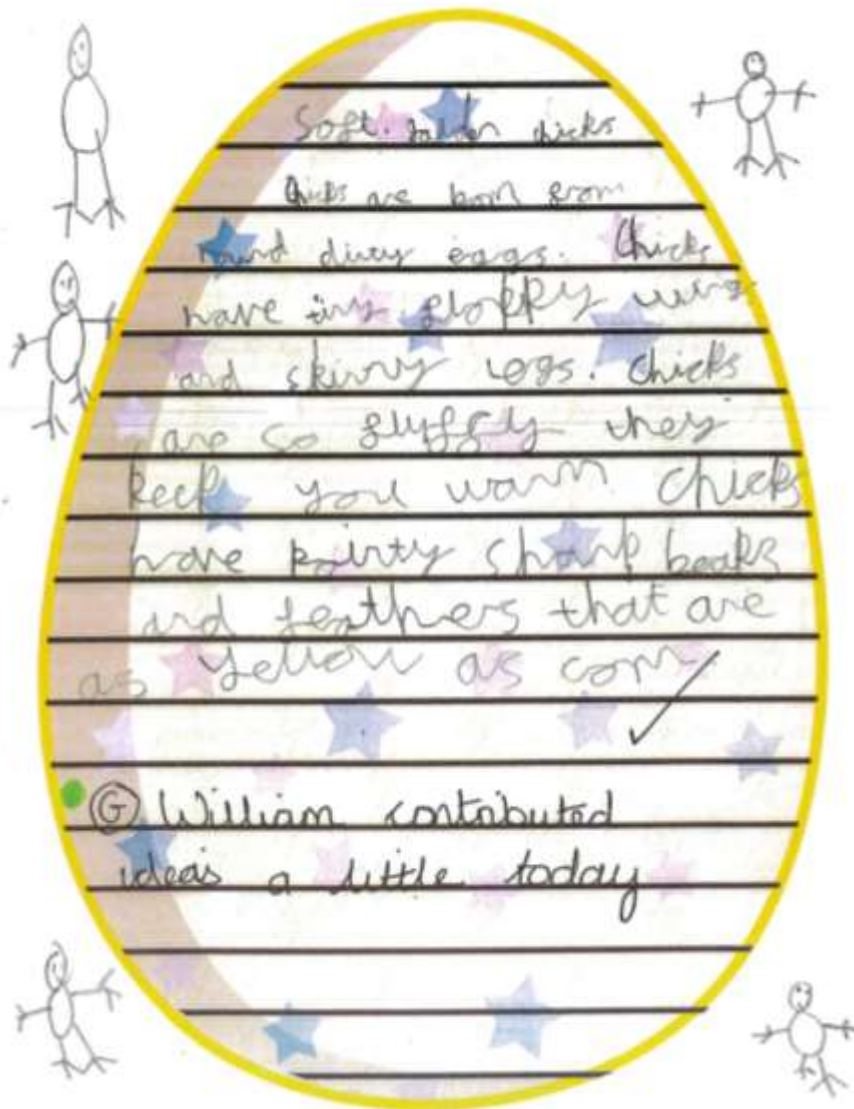 Soft. golden chicks
Chicks are born from
round dirty eggs. Chicks
have tiny floppy wings
and skinny legs. Chicks
are so fluffy they
keep you warm chicks
have pointy sharp beaks
and feathers that are
as yellow as corn.
G William contributed
ideas a little today